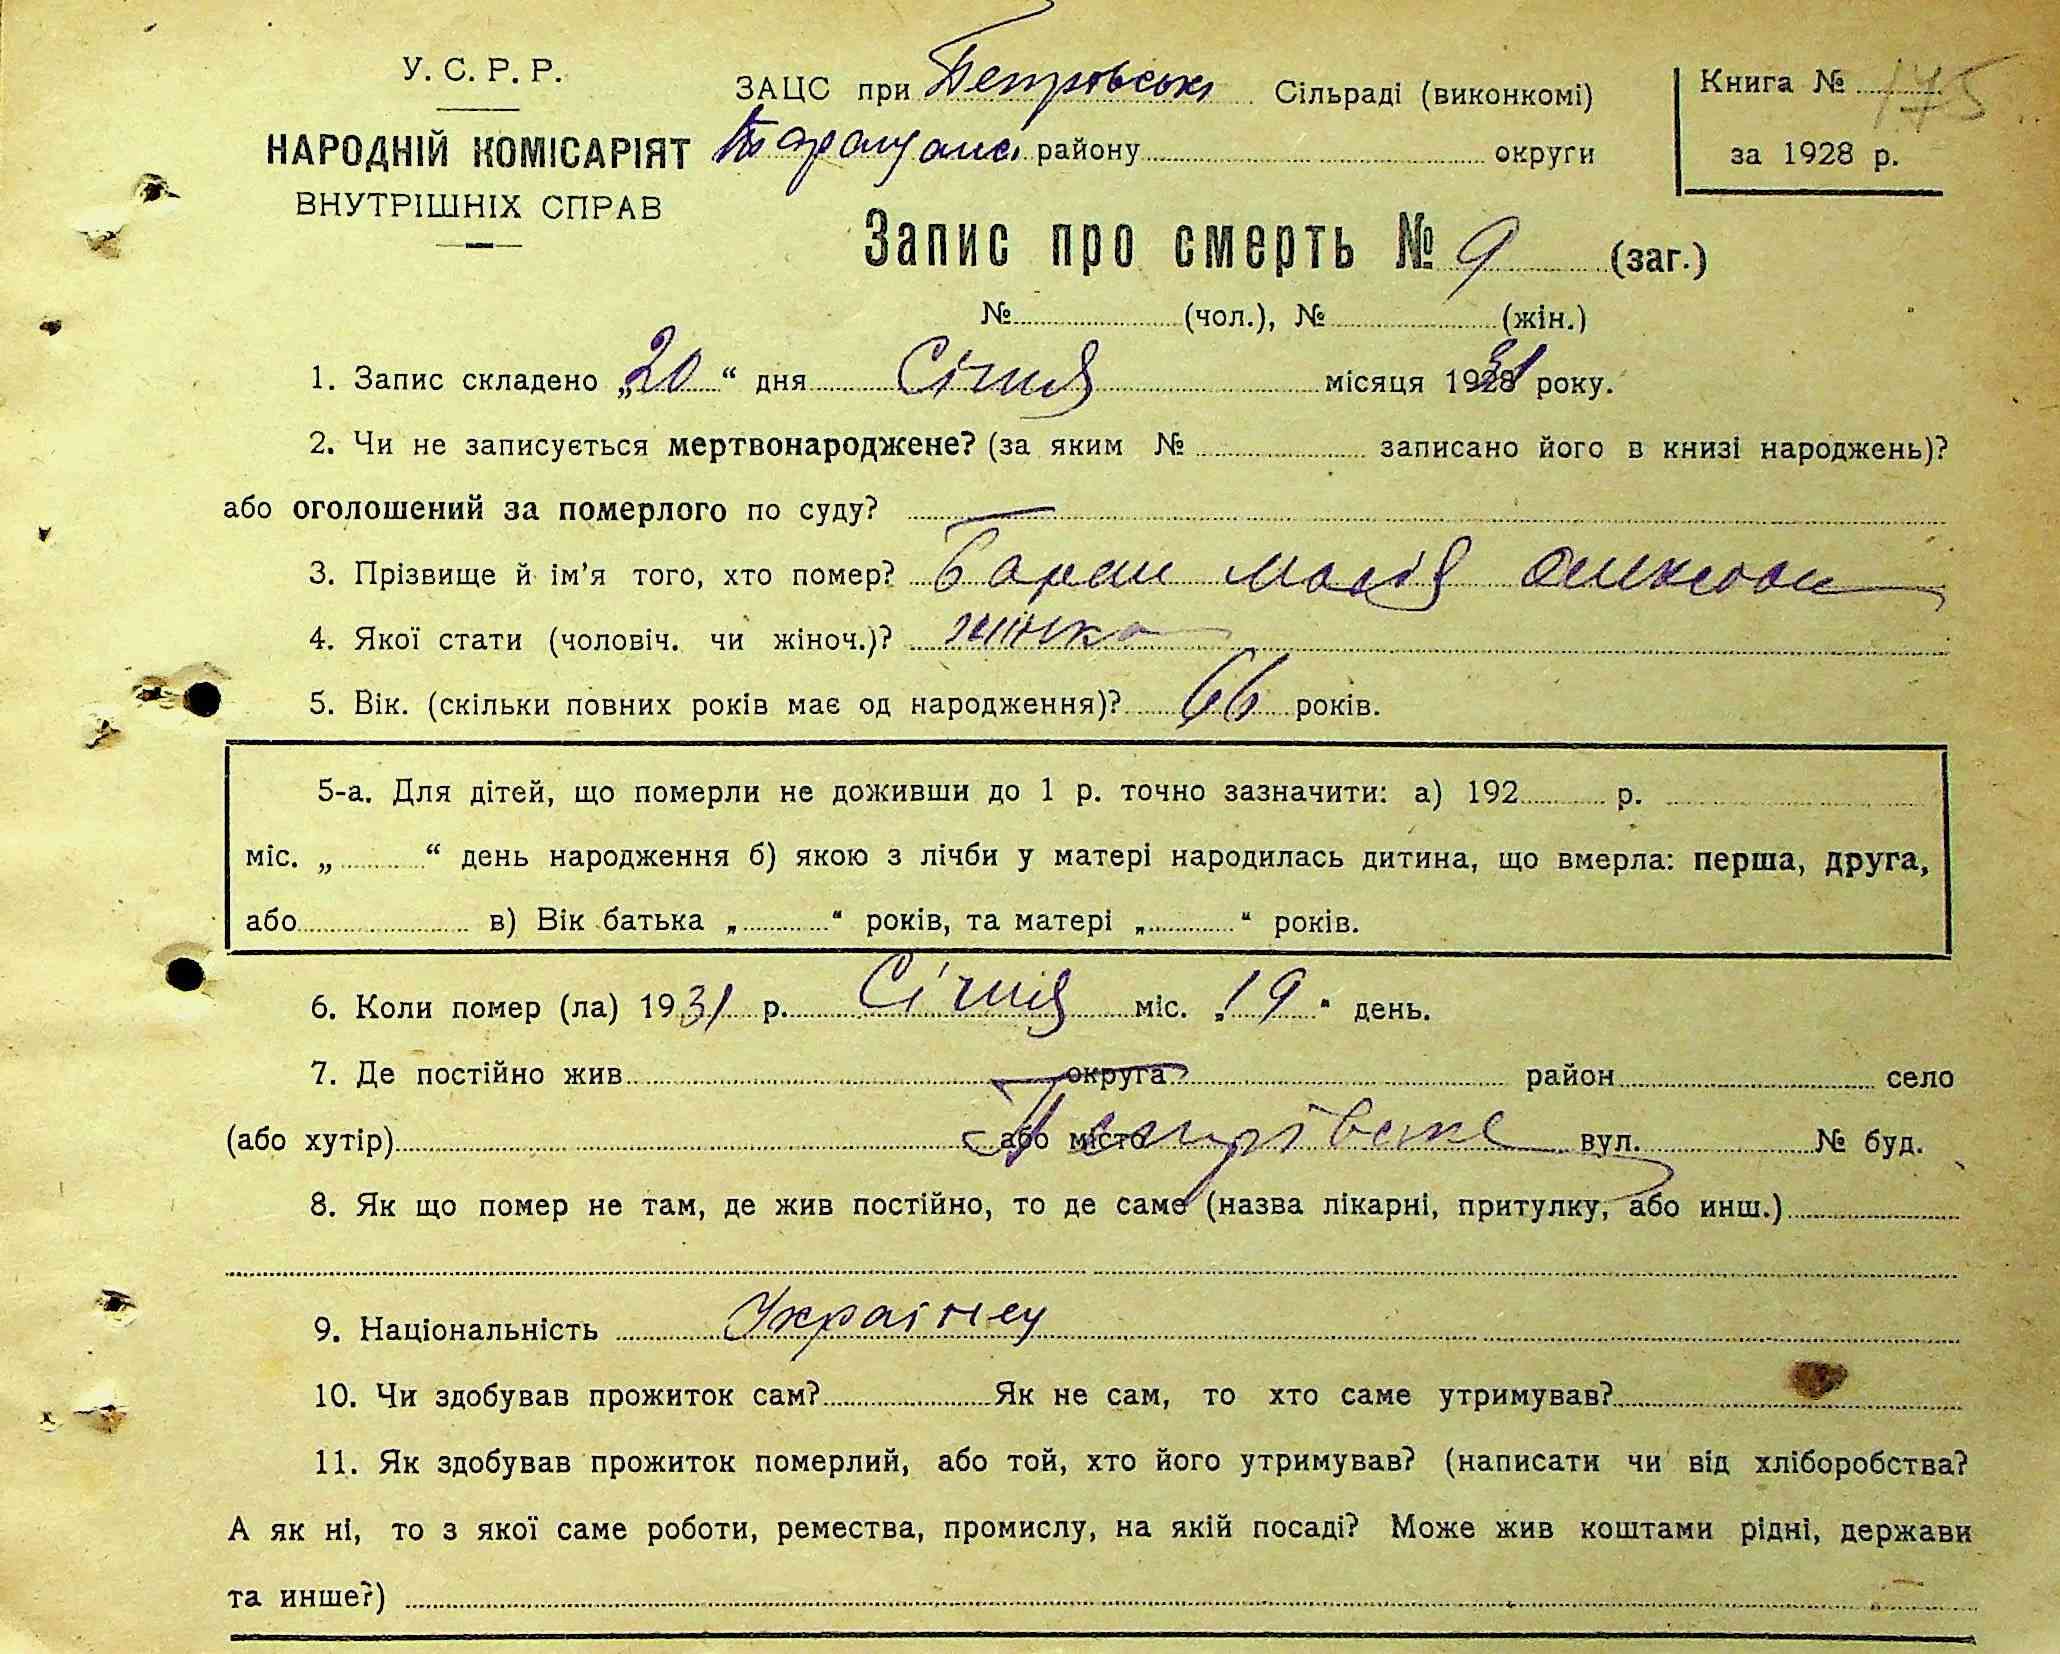 У. С. Р. Р.
НАРОДНІЙ КОМІСАРІЯТ
ВНУТРІШНІХ СПРАВ
ЗАЦС при Петрівські Сільраді (виконкомі)
району округи
Книга № 175
за 1928 р.
Запис про смерть № 9 (заг.)
№ (чол.), № (жін.)
1. Запис складено „20“ дня Січня місяця 1931 року.
2. Чи не записується мертвонароджене? (за яким № записано його в книзі народжень)?
або оголошений за померлого по суду?
3. Прізвище й ім’я того, хто помер? Баран Марія
4. Якої стати (чоловіч. чи жіноч.)? жінка
5. Вік. (скільки повних років має од народження)? 66 років.
5-а. Для дітей, що померли не доживши до 1 р. точно зазначити: а) 192 р.
міс. „ “ день народження б) якою з лічби у матері народилась дитина, що вмерла: перша, друга,
або в) Вік батька „ “ років, та матері „ “ років.
6. Коли помер (ла) 1931 р. Січня міс. „19“ день.
7. Де постійно жив округа район село
(або хутір) або місто Петрівське вул. № буд.
8. Як що помер не там, де жив постійно, то де саме (назва лікарні, притулку, або инш.)
9. Національність Україну
10. Чи здобував прожиток сам? Як не сам, то хто саме утримував?
11. Як здобував прожиток померлий, або той, хто його утримував? (написати чи від хліборобства?
А як ні, то з якої саме роботи, ремества, промислу, на якій посаді? Може жив коштами рідні, держави
та инше?)